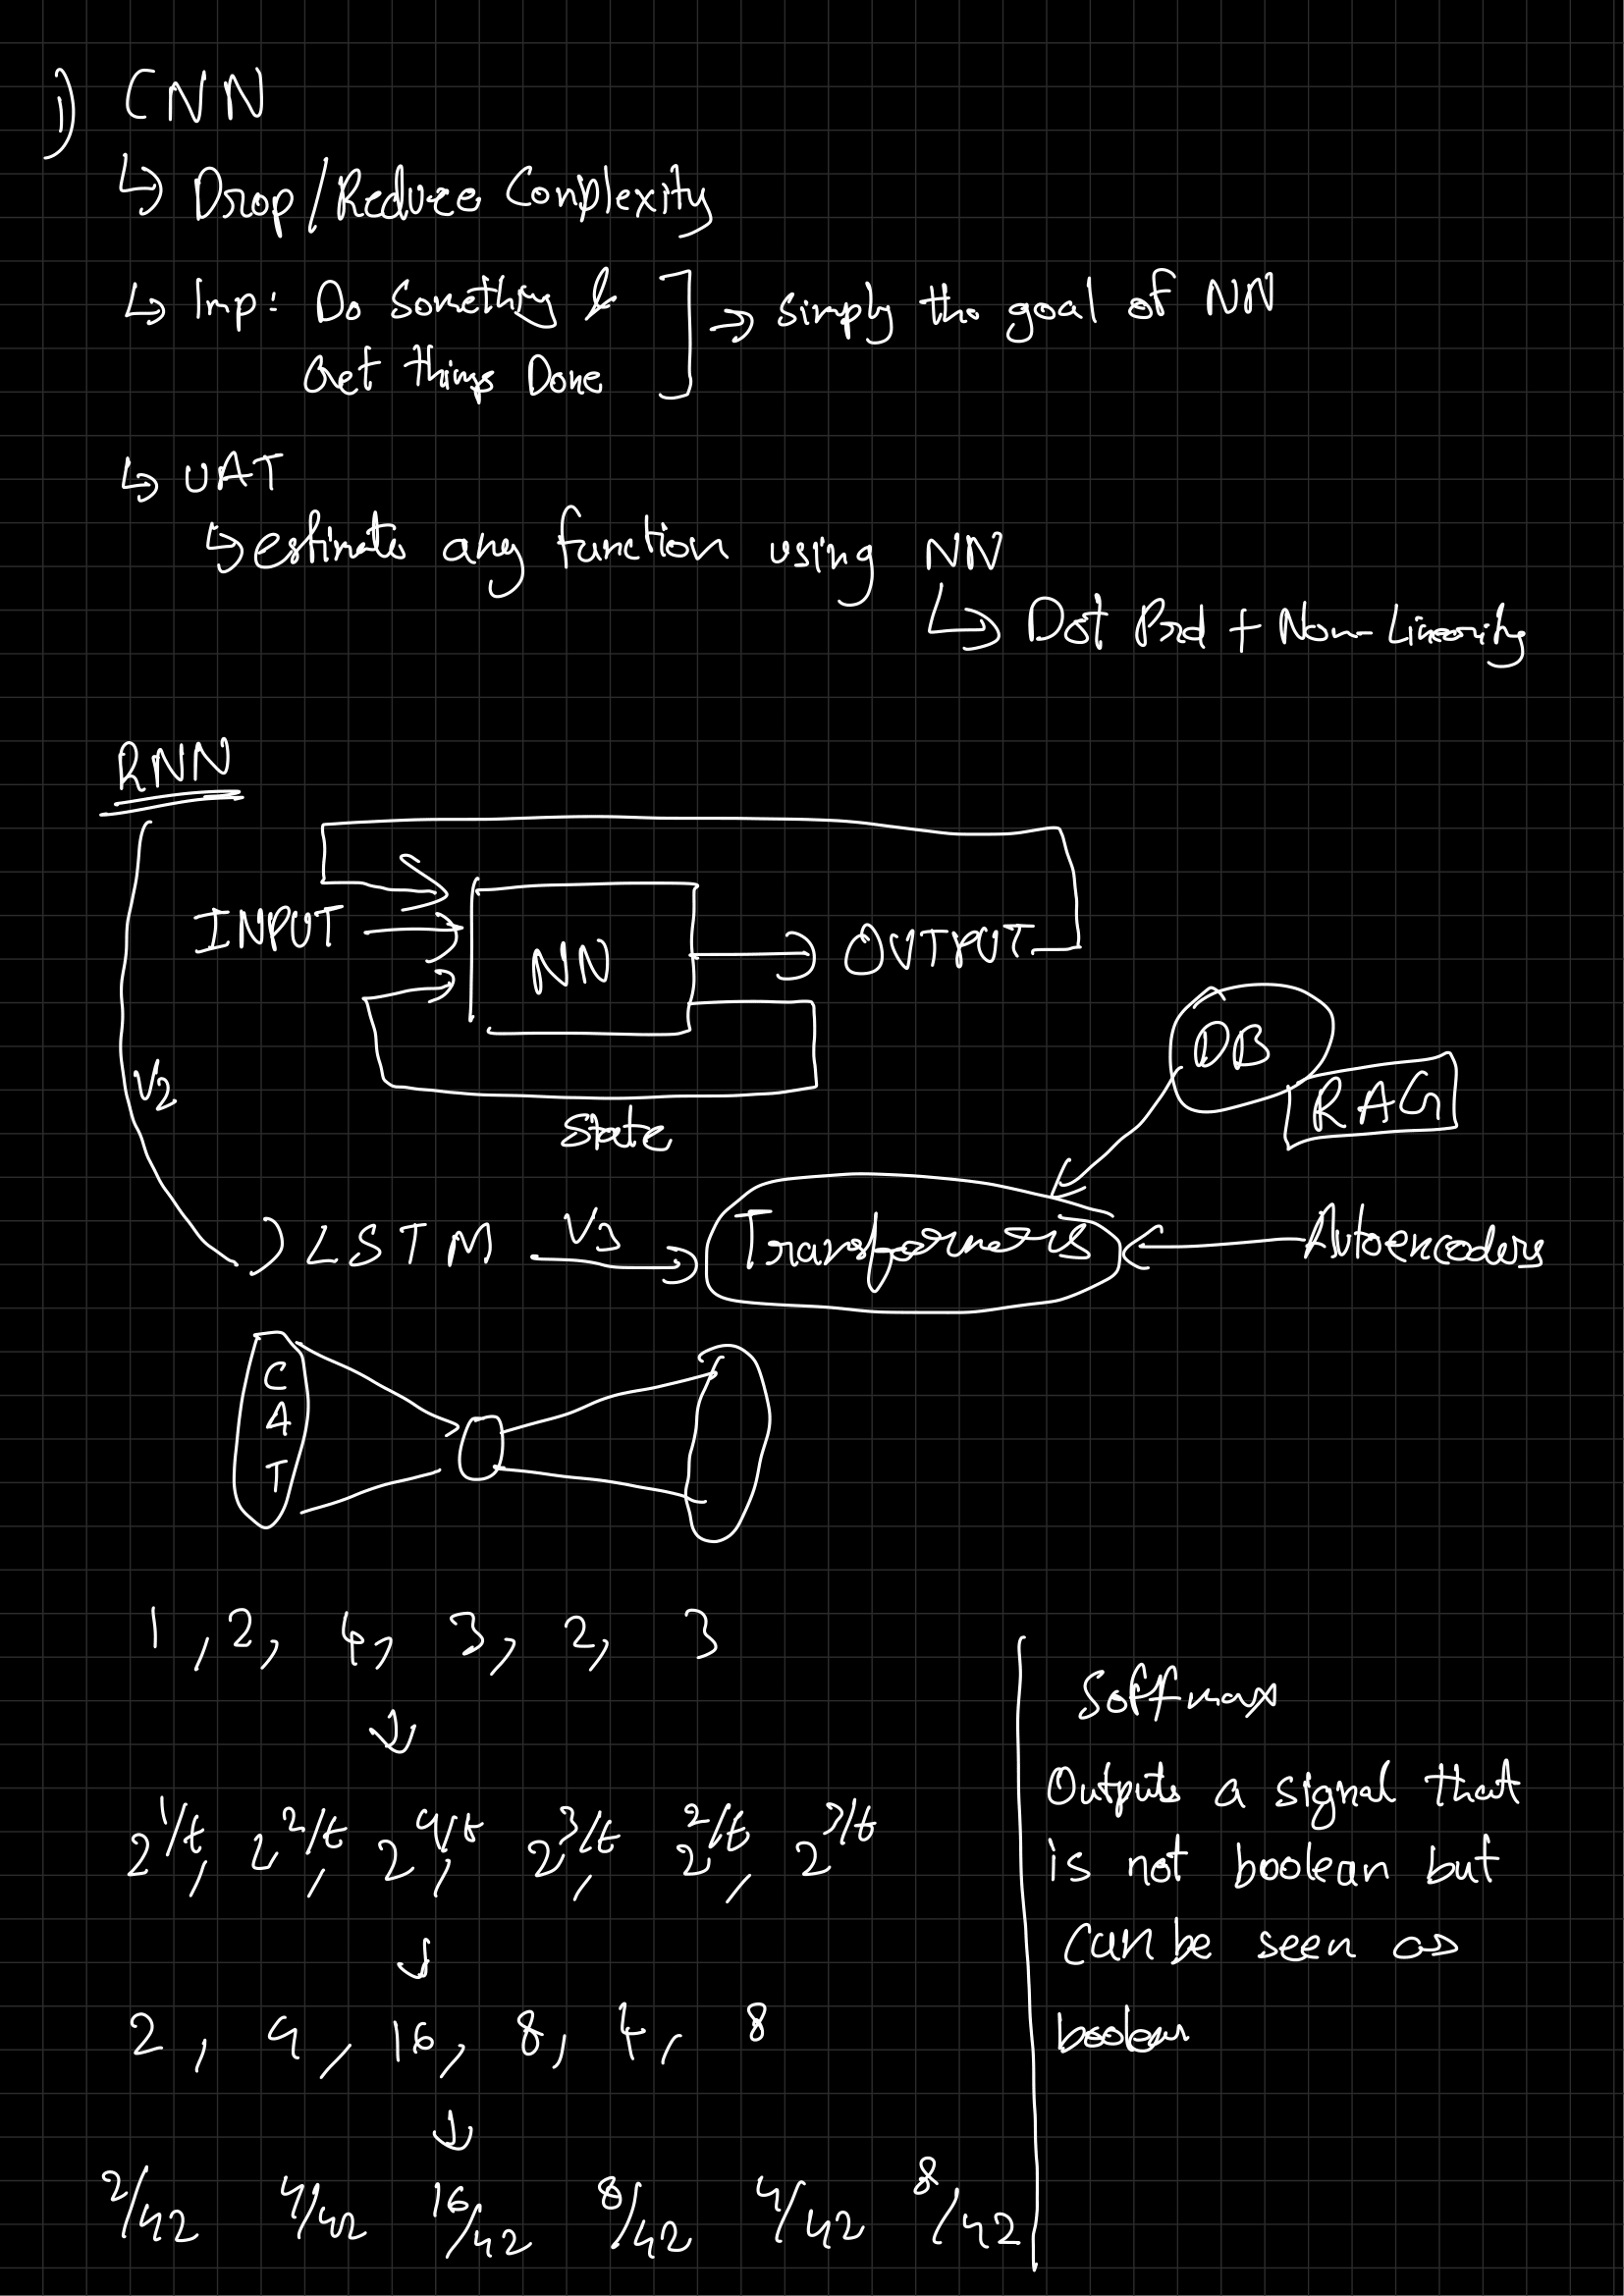 1) CNN
↳ Drop/Reduce Complexity
↳ Imp: Do Something & → simply the goal of NN
Get things Done
↳ UAT
↳ estimate any function using NN
↳ Dot Prd + Non-Linearity
RNN
INPUT → NN → OUTPUT
State
V2
DB
RAG
LSTM V3 → Transformers ← Autoencoders
C
A
T
1, 2, 4, 3, 2, 3
↓
2^1/t, 2^2/t, 2^4/t, 2^3/t, 2^2/t, 2^3/t
↓
2, 4, 16, 8, 4, 8
↓
2/42 4/42 16/42 8/42 4/42 8/42
Softmax
Outputs a signal that
is not boolean but
can be seen as
boolean